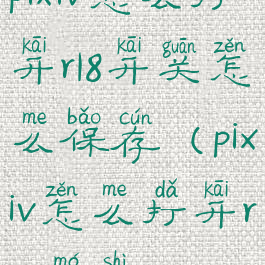 pixiv怎么打
kāi kāi guān zěn
开r18开关怎
me bǎo cún
么保存（pix
zěn me dǎ kāi
iv怎么打开r
mó shì